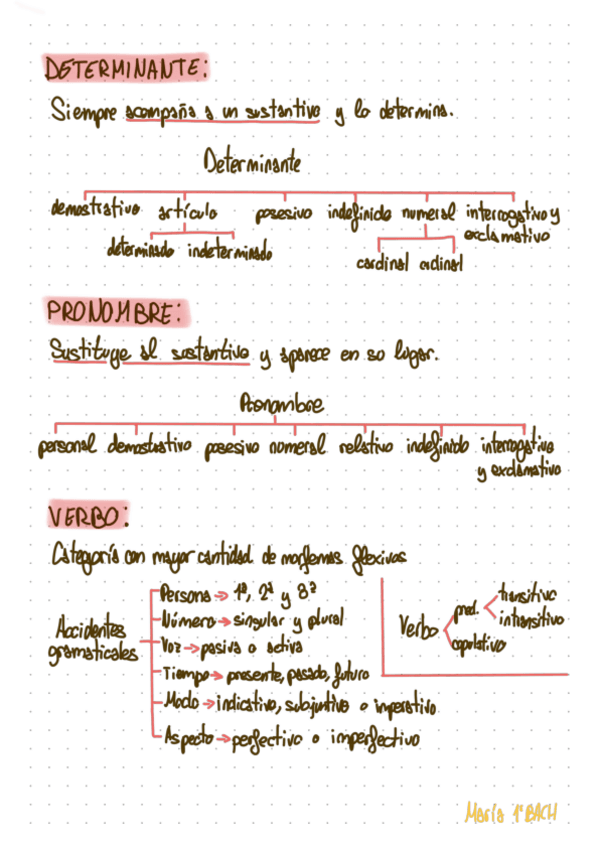 DETERMINANTE:
Siempre acompaña a un sustantivo y lo determina.
Determinante
demostrativo artículo posesivo indefinido numeral interrogativo y
exclamativo
determinado indeterminado
cardinal ordinal
PRONOMBRE:
Sustituye al sustantivo y aparece en so lugar.
Pronombre
personal demostrativo posesivo numeral relativo indefinido interrogativo
y exclamativo
VERBO:
Categoría con mayor cantidad de morfemas flexivos
Accidentes
gramaticales
Persona → 1ª, 2ª y 3ª
Número → singular y plural
Voz → pasiva o activa
Tiempo → presente, pasado, futuro
Modo → indicativo, subjuntivo o imperativo
Aspecto → perfectivo o imperfectivo
Verbo
pred.
transitivo
intransitivo
copulativo
María 1ºBACH